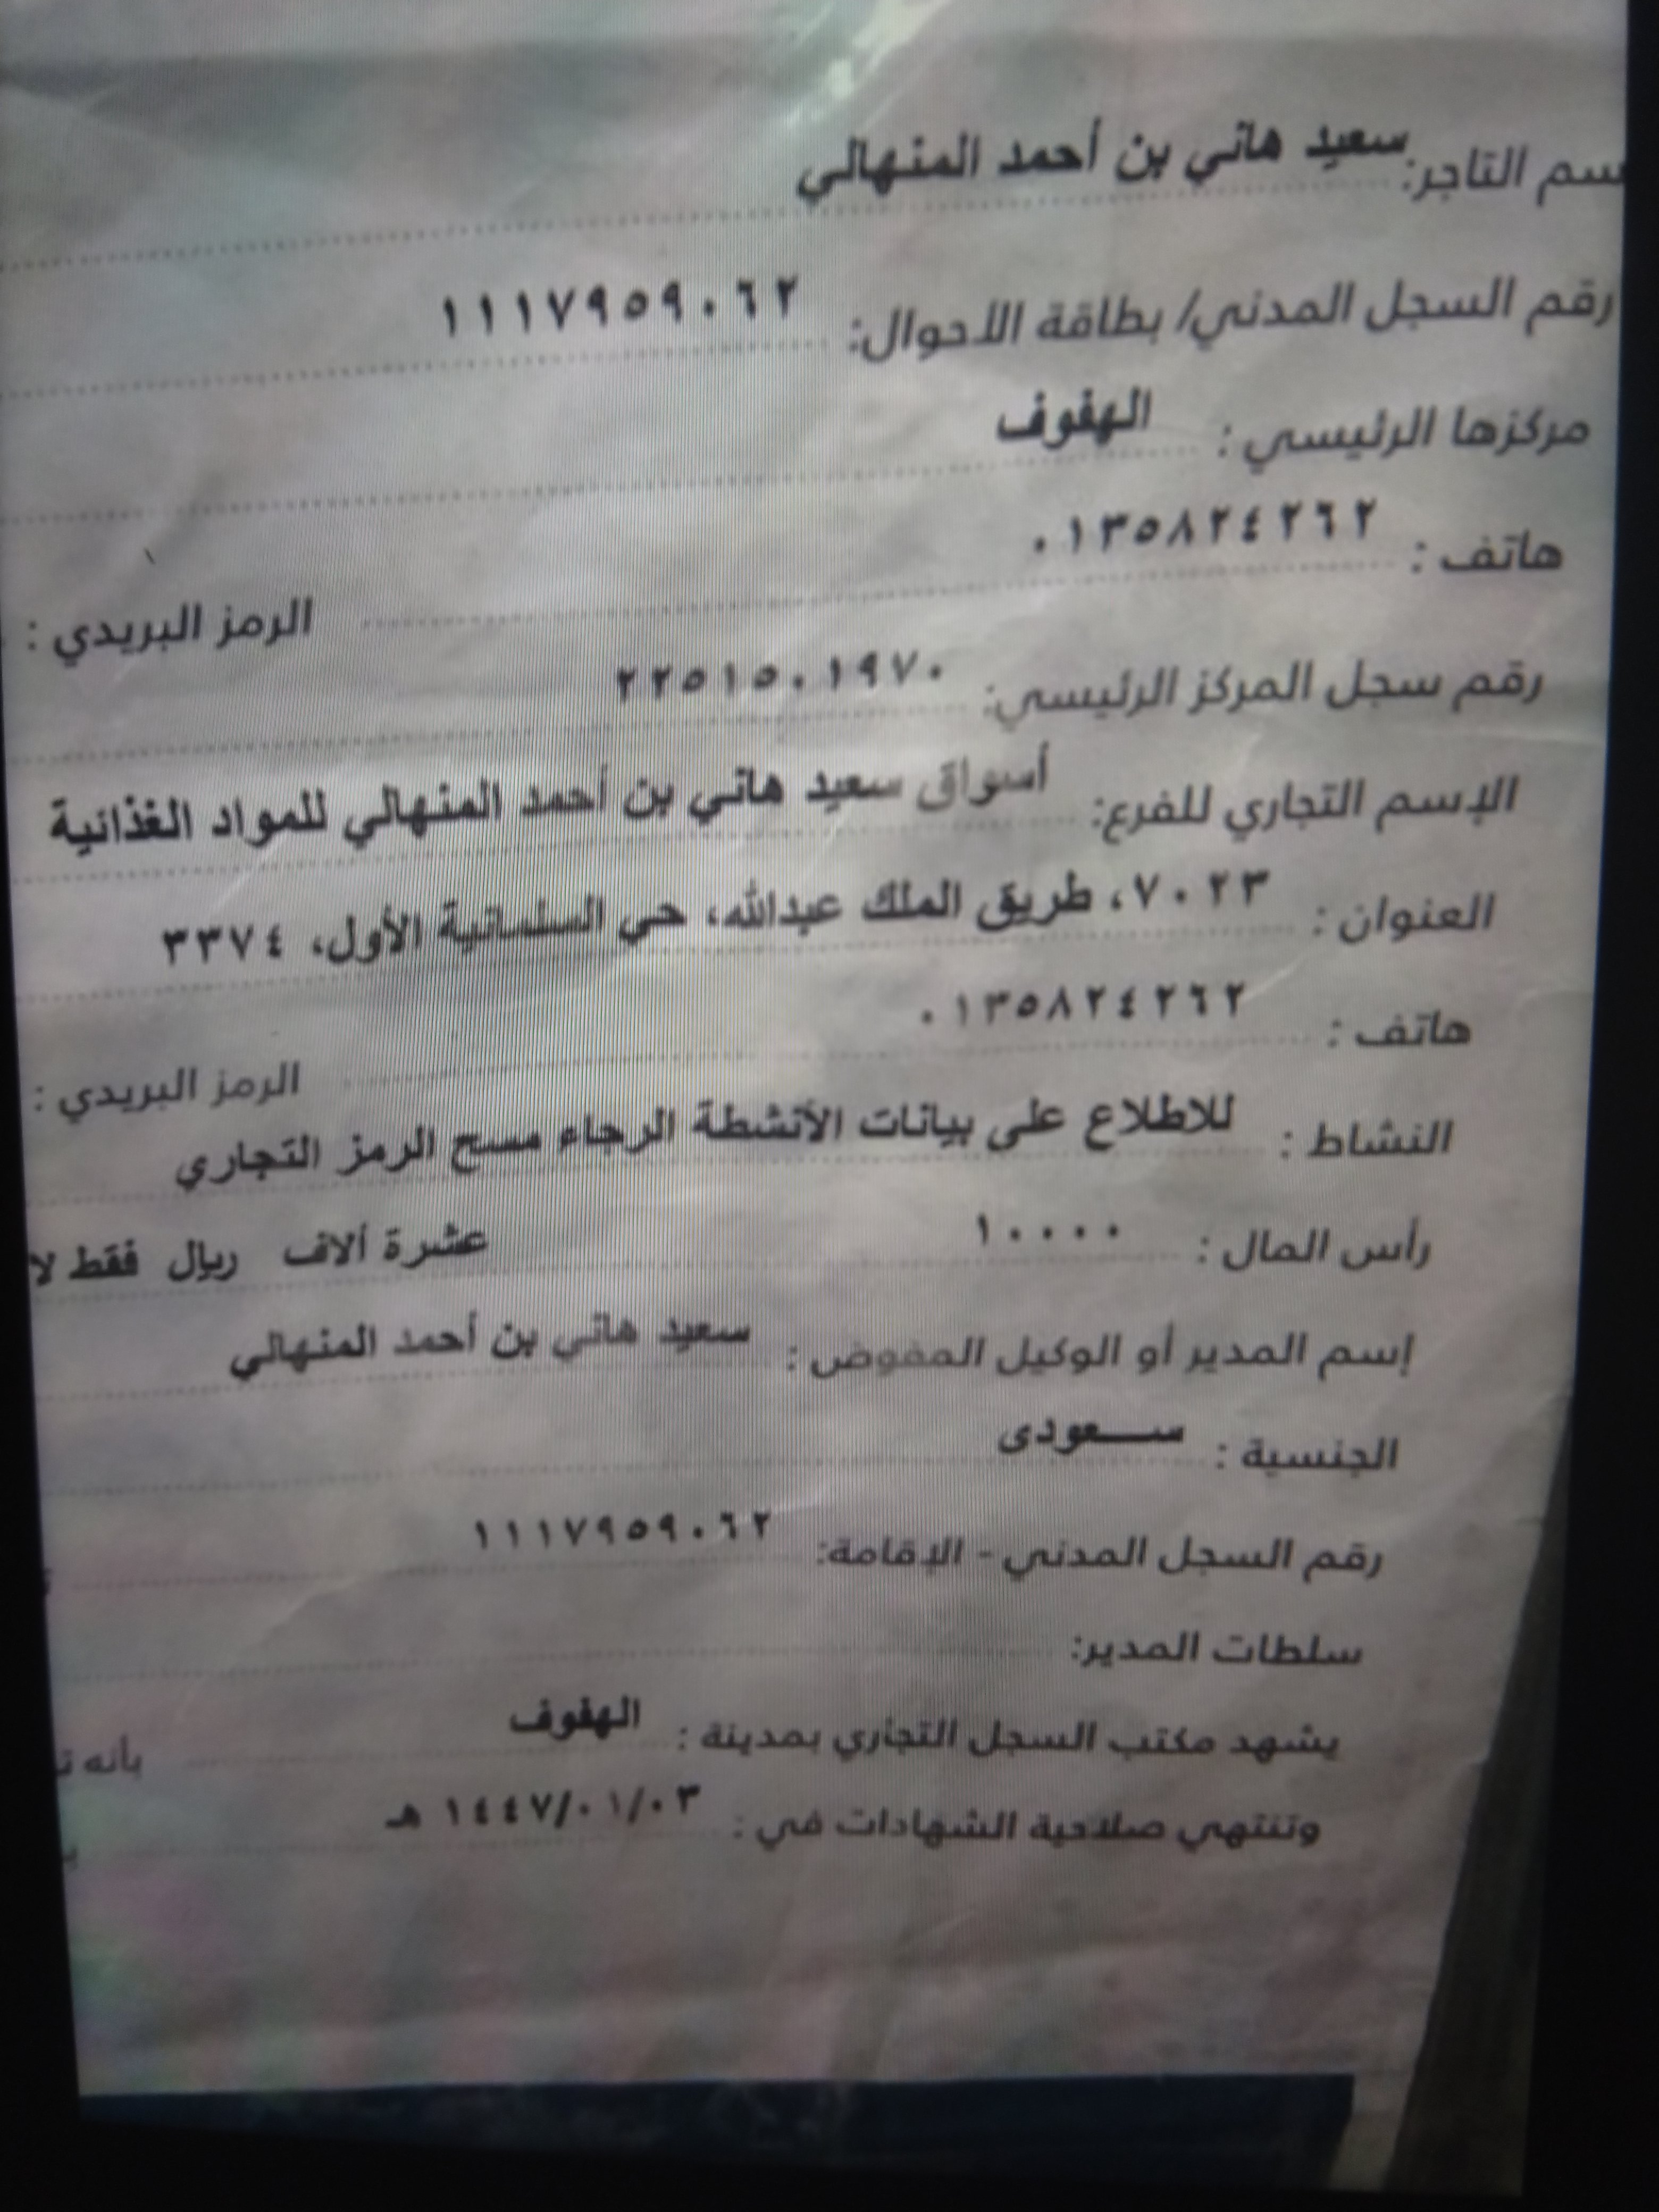 سم التاجر: سعيد هاني بن أحمد المنهالي
رقم السجل المدني/ بطاقة الأحوال: ١١١٧٩٥٩٠٦٢
مركزها الرئيسي : الهفوف
هاتف : ٠١٣٥٨٢٤٢٦٢ الرمز البريدي :
رقم سجل المركز الرئيسي: ٢٢٥١٥٠١٩٧٠
الإسم التجاري للفرع: أسواق سعيد هاني بن أحمد المنهالي للمواد الغذائية
العنوان : ٧٠٢٣، طريق الملك عبدالله، حي السلمانية الأول، ٣٣٧٤
هاتف : ٠١٣٥٨٢٤٢٦٢ الرمز البريدي :
النشاط : للاطلاع على بيانات الأنشطة الرجاء مسح الرمز التجاري
رأس المال : ١٠٠٠٠ عشرة ألاف ريال فقط لا
إسم المدير أو الوكيل المفوض : سعيد هاني بن أحمد المنهالي
الجنسية : ســعودى
رقم السجل المدني - الإقامة: ١١١٧٩٥٩٠٦٢
سلطات المدير:
يشهد مكتب السجل التجاري بمدينة : الهفوف بأنه
وتنتهي صلاحية الشهادات في : ١٤٤٧/٠١/٠٣ هـ